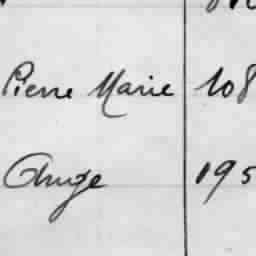 Pierre Marie 108
Ange 195